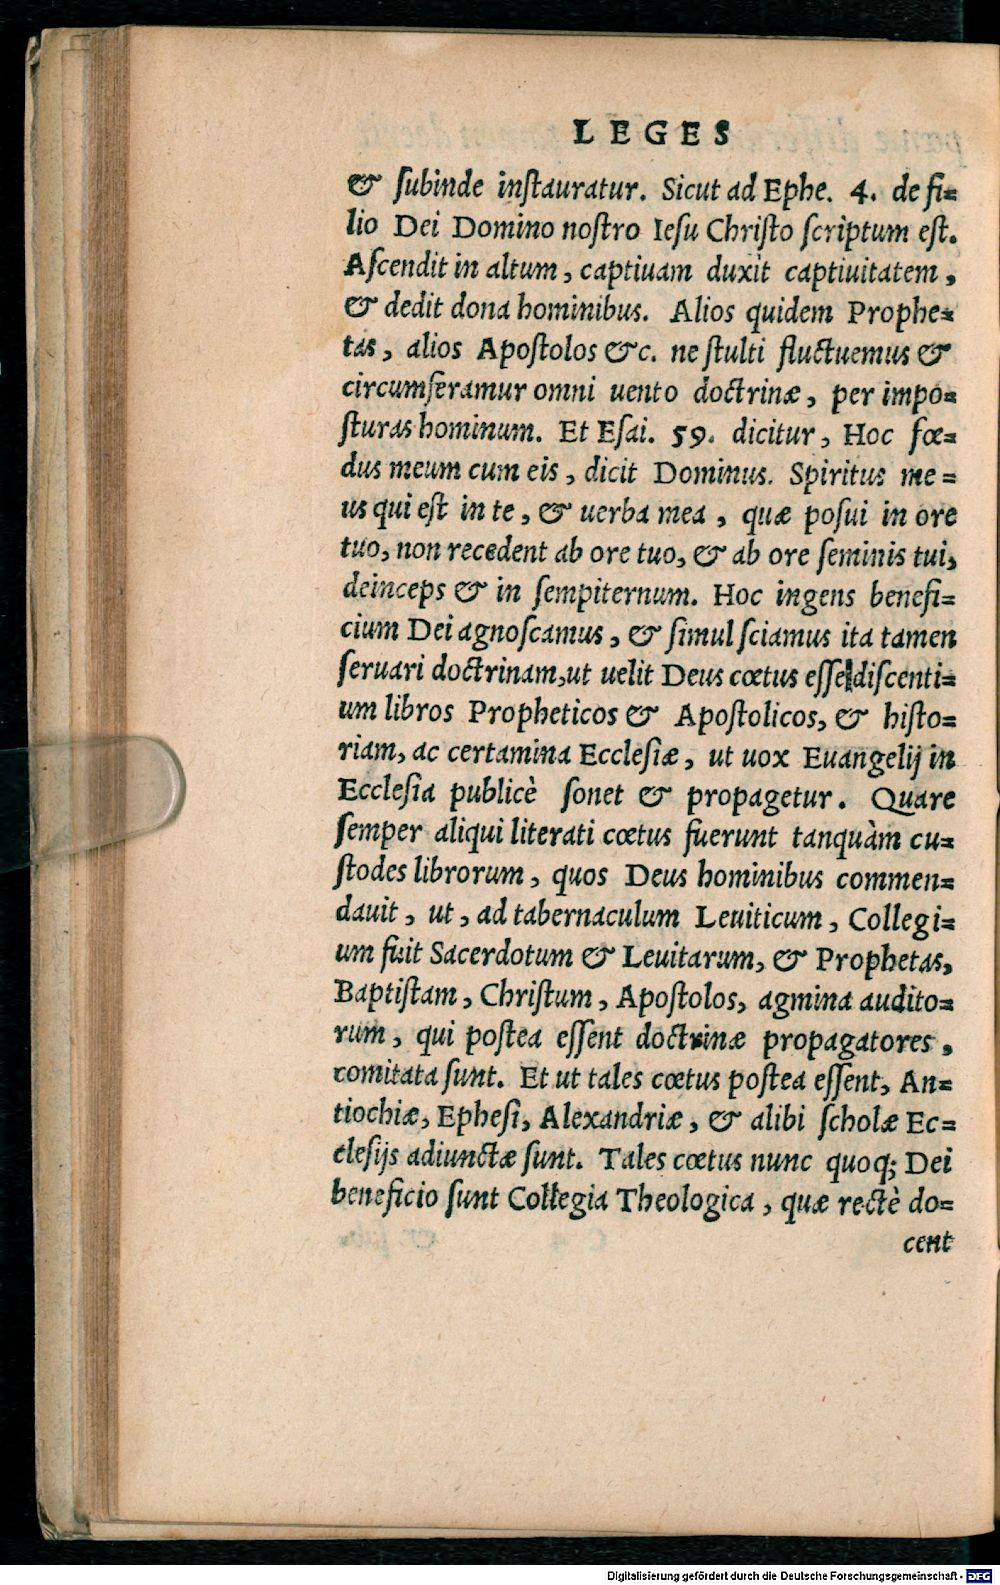 LEGES
& ſubinde inſtauratur. Sicut ad Ephe. 4. de fi=
lio Dei Domino noſtro Ieſu Chriſto ſcriptum eſt.
Aſcendit in altum, captiuam duxit captiuitatem,
& dedit dona hominibus. Alios quidem Prophe=
tas, alios Apoſtolos &c. ne ſtulti fluctuemus &
circumferamur omni uento doctrinæ, per impo=
ſturas hominum. Et Eſai. 59. dicitur, Hoc fœ=
dus meum cum eis, dicit Dominus. Spiritus me=
us qui eſt in te, & uerba mea, quæ poſui in ore
tuo, non recedent ab ore tuo, & ab ore ſeminis tui,
deinceps & in ſempiternum. Hoc ingens benefi=
cium Dei agnoſcamus, & ſimul ſciamus ita tamen
ſeruari doctrinam, ut uelit Deus cœtus eſſe diſcenti=
um libros Propheticos & Apoſtolicos, & hiſto=
riam, ac certamina Eccleſiæ, ut uox Euangelij in
Eccleſia publicè ſonet & propagetur. Quare
ſemper aliqui literati cœtus fuerunt tanquàm cu=
ſtodes librorum, quos Deus hominibus commen=
dauit, ut, ad tabernaculum Leuiticum, Collegi=
um fuit Sacerdotum & Leuitarum, & Prophetas,
Baptiſtam, Chriſtum, Apoſtolos, agmina audito=
rum, qui poſtea eſſent doctrinæ propagatores,
comitata ſunt. Et ut tales cœtus poſtea eſſent, An=
tiochiæ, Epheſi, Alexandriæ, & alibi ſcholæ Ec=
cleſijs adiunctæ ſunt. Tales cœtus nunc quoq; Dei
beneficio ſunt Collegia Theologica, quæ rectè do=
cent
Digitalisierung gefördert durch die Deutsche Forschungsgemeinschaft - DFG